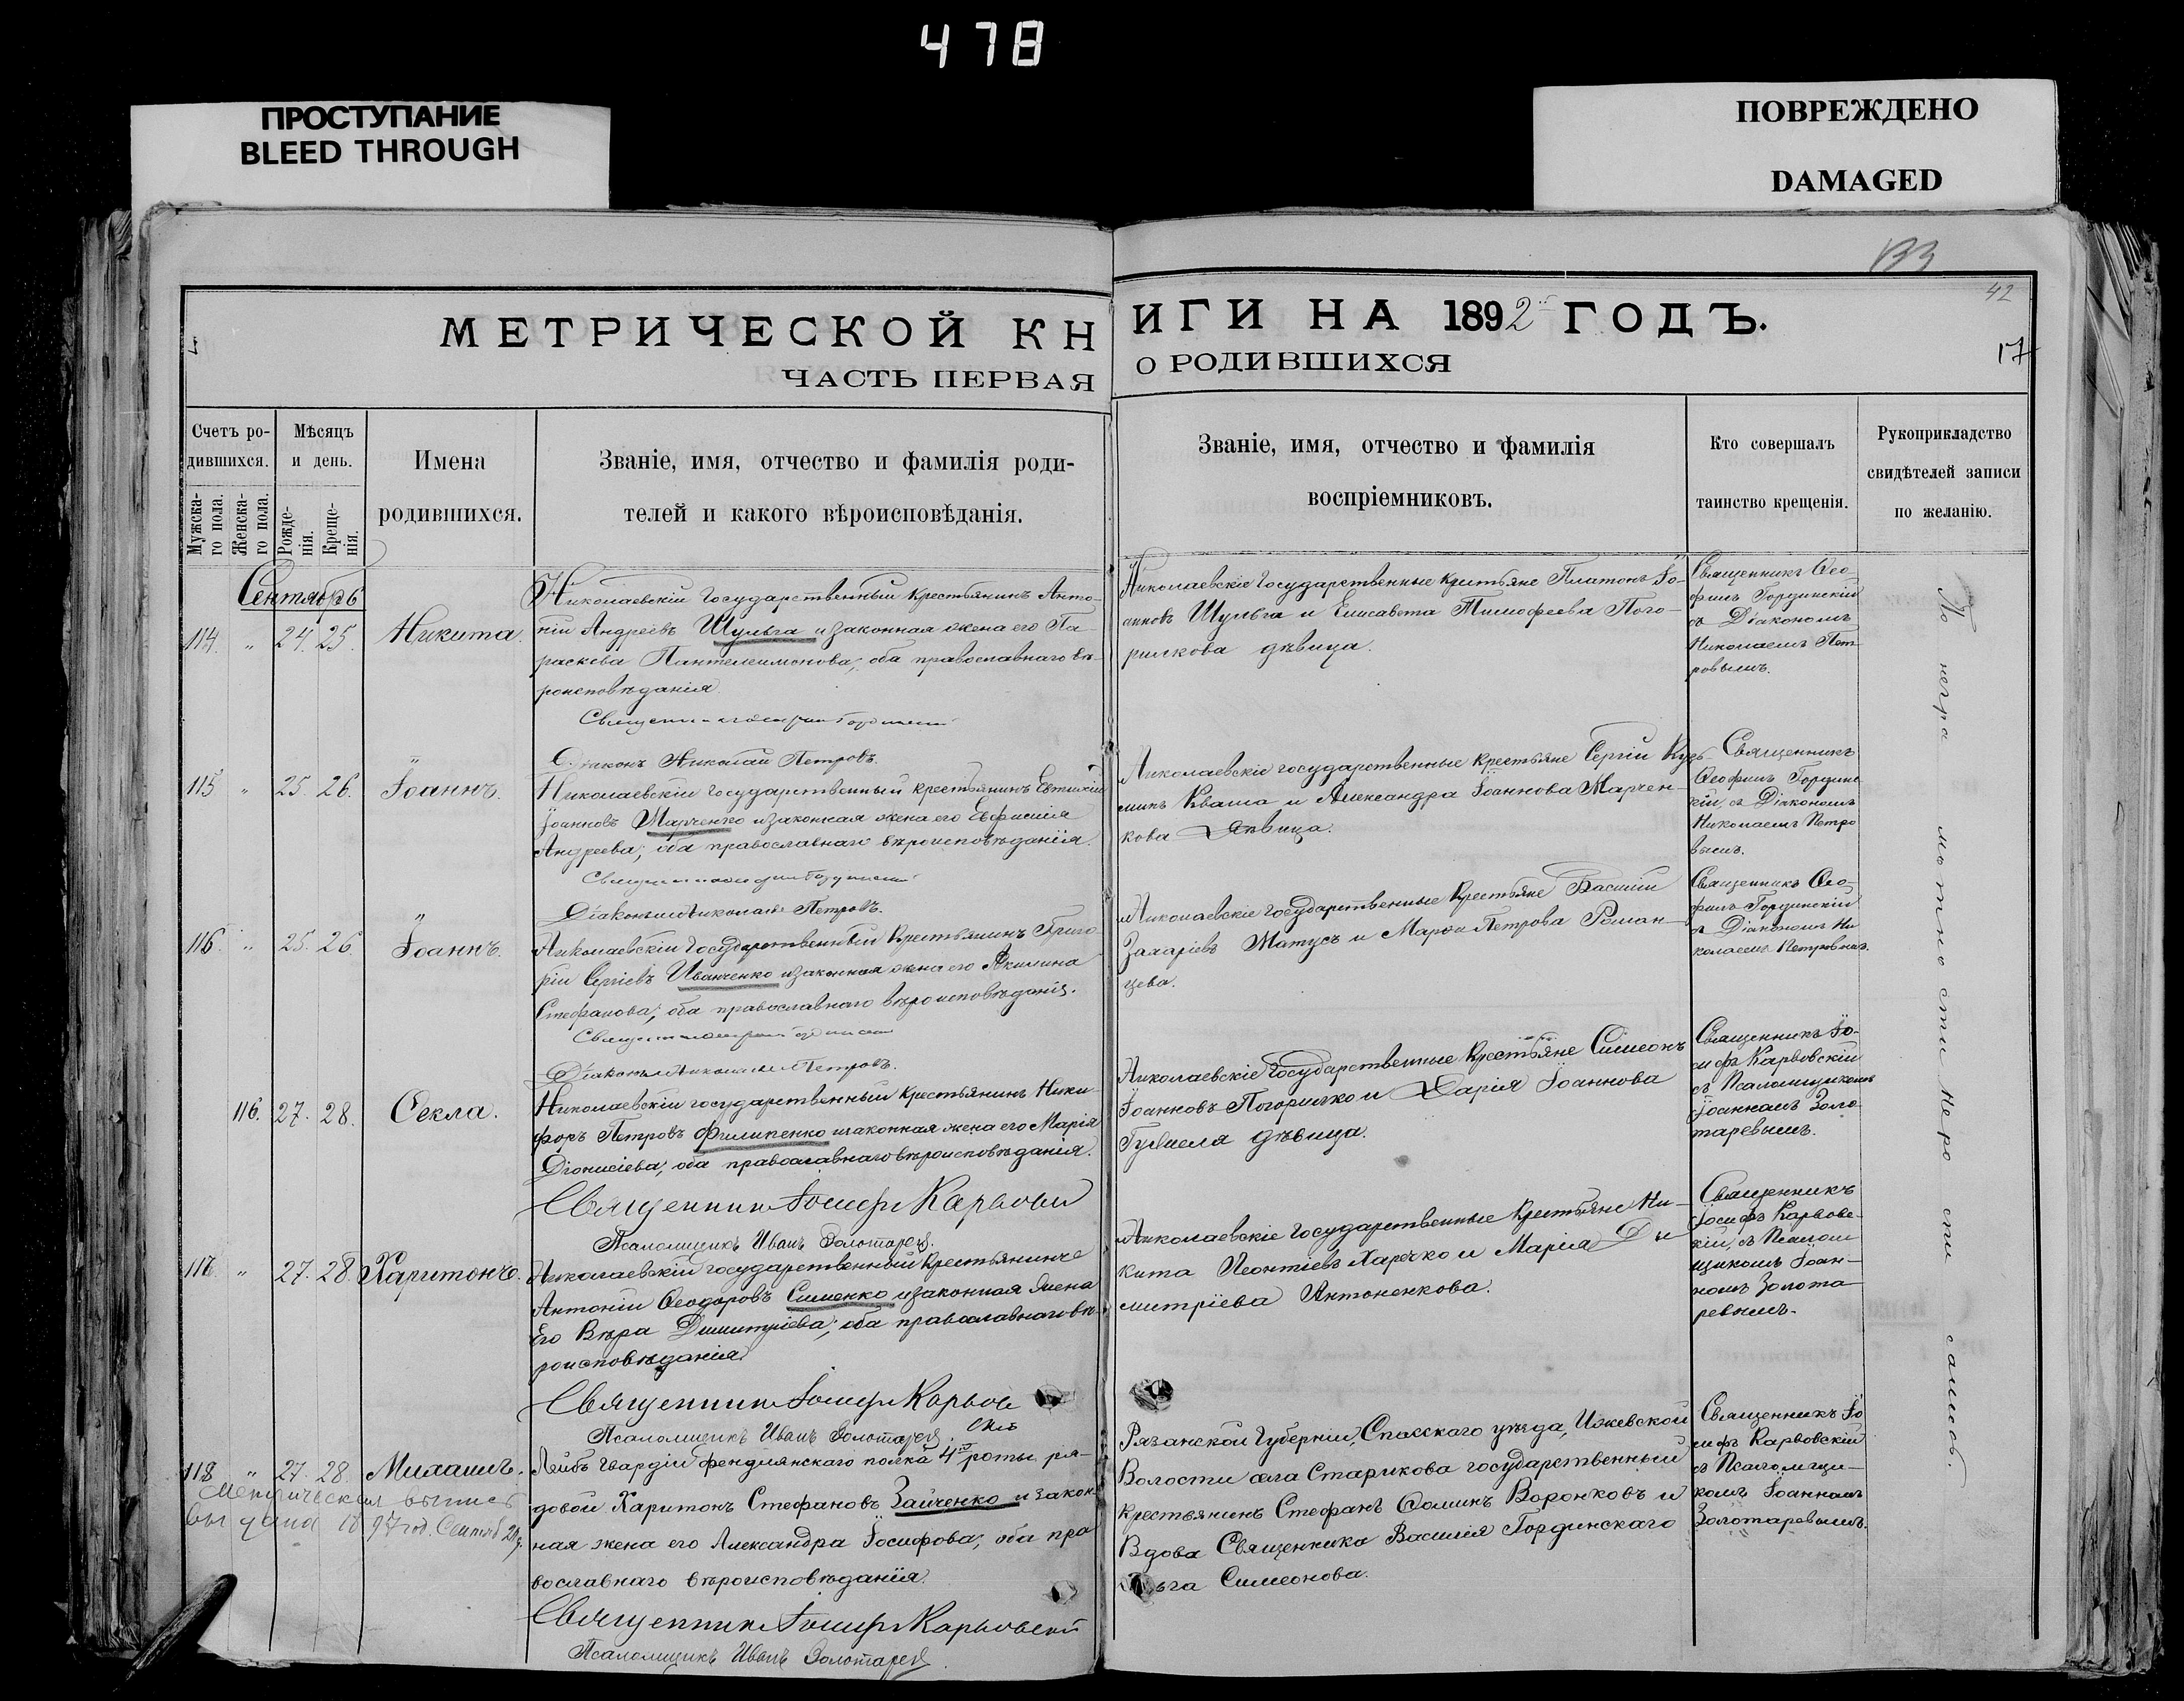 478
ПРОСТУПАНИЕ
BLEED THROUGH
ПОВРЕЖДЕНО
DAMAGED
42
17
МЕТРИЧЕСКОЙ КНИГИ НА 1892 ГОДЪ.
ЧАСТЬ ПЕРВАЯ О РОДИВШИХСЯ
Счетъ ро-
дившихся.
Мужска-
го пола.
Женска-
го пола.
Мѣсяцъ
и день.
Рожде-
нія.
Креще-
нія.
Имена
родившихся.
Званіе, имя, отчество и фамилія роди-
телей и какого вѣроисповѣданія.
Званіе, имя, отчество и фамилія
воспріемниковъ.
Кто совершалъ
таинство крещенія.
Рукоприкладство
свидѣтелей записи
по желанію.
Сентябрь
114. " 24. 25. Никита.
Николаевскій государственный крестьянинъ Анто-
ній Андреевъ Шульга и законная жена его Па-
раскева Пантелеимонова, оба православнаго вѣ-
роисповѣданія
Діаконъ Николай Петровъ.
Николаевскіе государственные крестьяне Платонъ Іо-
анновъ Шульга и Елисавета Тимофеева Пого-
рилкова дѣвица.
Священникъ Ѳео-
филъ Гординскій
съ Діакономъ
Николаемъ Пет-
ровымъ.
115 " 25. 26. Іоаннъ.
Николаевскій государственный крестьянинъ Евтихій
Іоанновъ Марченко и законная жена его Евфимія
Андреева, оба православнаго вѣроисповѣданія.
Діаконъ Николай Петровъ.
Николаевскіе государственные крестьяне Сергій Кузь-
минъ Кваша и Александра Іоаннова Марчен-
кова Дѣвица.
Священникъ
Ѳеофилъ Гординс-
кій, съ Діакономъ
Николаемъ Петро
вымъ.
116. " 25. 26. Іоаннъ.
Николаевскій государственный крестьянинъ Григо-
рій Сергіевъ Иванченко и законная жена его Акилина
Стефанова, оба православнаго вѣроисповѣданія.
Діаконъ Николай Петровъ.
Николаевскіе государственные крестьяне Василій
Захаріевъ Матусъ и Марѳа Петрова Роман-
цева.
Священникъ Ѳео-
филъ Гординскій
съ Діакономъ Ни
колаемъ Петровымъ.
116. 27. 28. Ѳекла.
Николаевскій государственный крестьянинъ Ники-
форъ Петровъ Филипенко и законная жена его Марія
Діонисіева, оба православнаго вѣроисповѣданія.
Священникъ Іосифъ Карвовск
Псаломщикъ Иванъ Золотарев
Николаевскіе государственные крестьяне Симеонъ
Іоанновъ Погорилко и Дарія Іоаннова
дѣвица.
Священникъ Іо-
сифъ Карвовскій
съ Псаломщикомъ
Іоанномъ Золо-
таревымъ.
118 " 27. 28. Харитонъ.
Николаевскій государственный крестьянинъ
Антоній Ѳеодоровъ Сименко и законная жена
Его Вѣра Димитріева, оба православнаго вѣ-
роисповѣданія
Священникъ Іосифъ Карвов
скій
Псаломщикъ Иванъ Золотарев
Николаевскіе государственные крестьяне Ни-
кита Леонтіевъ Харечко и Марія Ди
митріева Антоненкова.
Священникъ
Іосифъ Карвовс-
кій, съ Псалом
щикомъ Іоан-
номъ Золота-
ревымъ.
118 " 27. 28. Михаилъ.
Метрическая выпись
выдана 1897 год. Сентяб 20
Лейбъ Гвардіи Фендлянскаго полка 4й роты, ря-
довой Харитонъ Стефановъ Зайченко и закон
ная жена его Александра Іосифова, оба пра
вославнаго вѣроисповѣданія.
Священникъ Іосифъ Карвовскій
Псаломщикъ Иванъ Золотарев
Рязанской Губерніи, Спасскаго уѣзда, Ижевской
Волости села Старикова государственный
крестьянинъ Стефанъ Ѳоминъ Воронковъ и
Вдова Священника Василія Гординскаго
ьга Симеонова.
Священникъ Іо
сифъ Карвовскій
съ Псаломщи-
комъ Іоанномъ
Золотаревымъ.
По неграмотности не росписались.